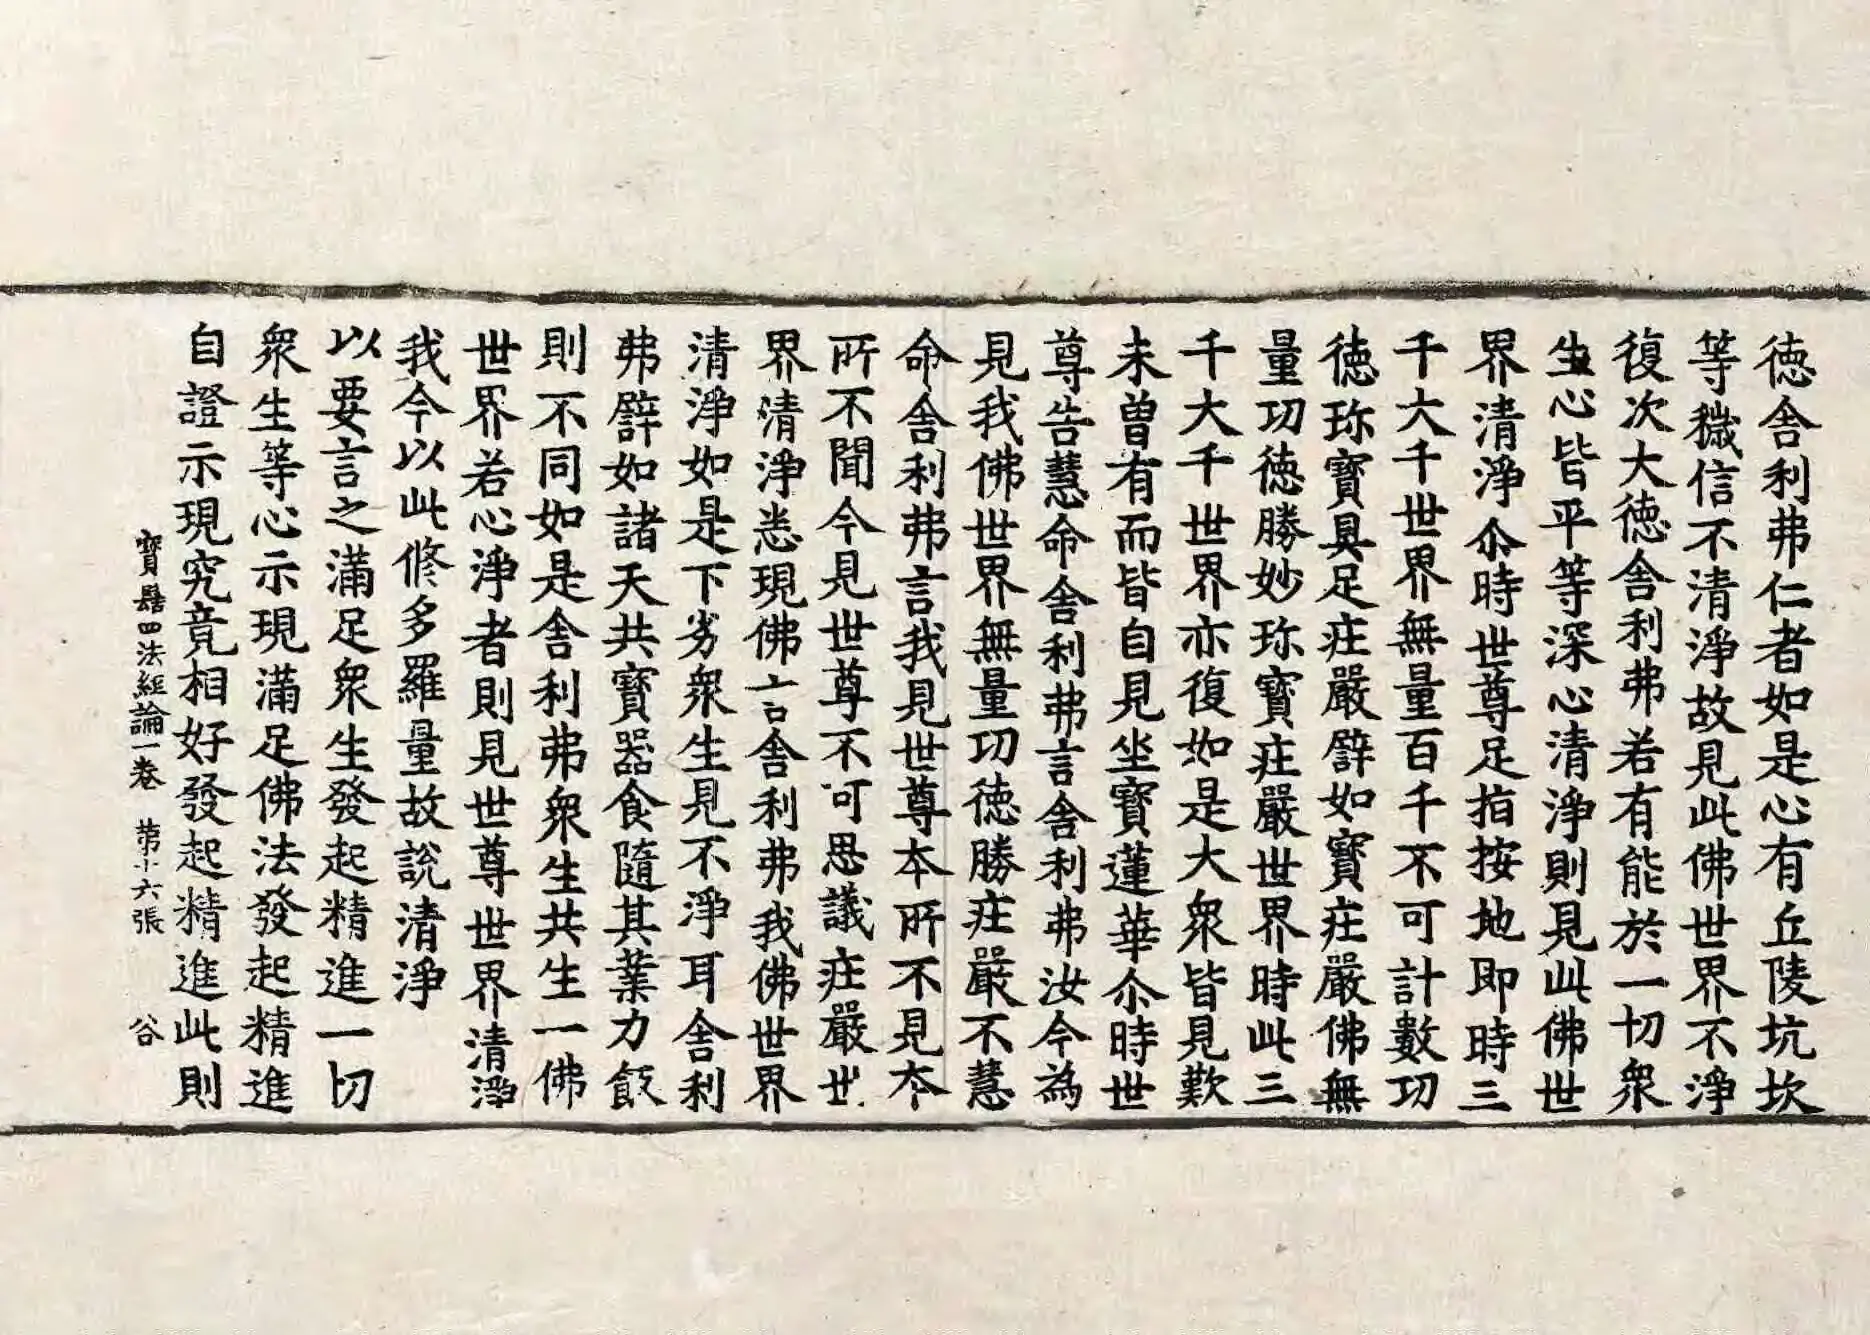 德舍利弗仁者如是心有丘陵坑坎
等穢信不清淨故見此佛世界不淨
復次大德舍利弗若有能於一切衆
生心皆平等深心清淨則見此佛世
界清淨尒時世尊足指按地即時三
千大千世界無量百千不可計數功
德珎寶具足庄嚴譬如寶庄嚴佛無
量功德勝妙珎寶庄嚴世界時此三
千大千世界亦復如是大衆皆見歎
未曾有而皆自見坐寶蓮華尒時世
尊告慧命舍利弗言舍利弗汝今為
見我佛世界無量功德勝庄嚴不慧
命舍利弗言我見世尊本所不見本
所不聞今見世尊不可思議庄嚴世
界清淨悉現佛言舍利弗我佛世界
清淨如是下劣衆生見不淨耳舍利
弗譬如諸天共寶器食隨其業力飯
則不同如是舍利弗衆生共生一佛
世界若心淨者則見世尊世界清淨
我今以此修多羅量故說清淨
以要言之滿足衆生發起精進一切
衆生等心示現滿足佛法發起精進
自證示現究竟相好發起精進此則
寶髻四法經論一卷 苐十六張 谷